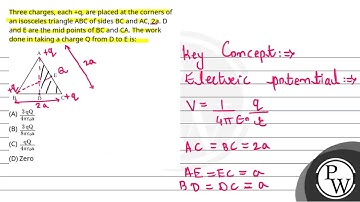 Three charges, each +q, are placed at the corners of
an isosceles triangle ABC of sides BC and AC, 2a. D
and E are the mid points of BC and CA. The work
done in taking a charge Q from D to E is:
A +q
2a
E Q
+q B D C +q
2a
(A) 3qQ/4πε₀a
(B) 3qQ/8πε₀a
(C) qQ/4πε₀a
(D) Zero
Key Concept:⇒
Electric potential:⇒
V = 1/4πE₀ q/r
AC = BC = 2a
AE = EC = a
BD = DC = a
PW